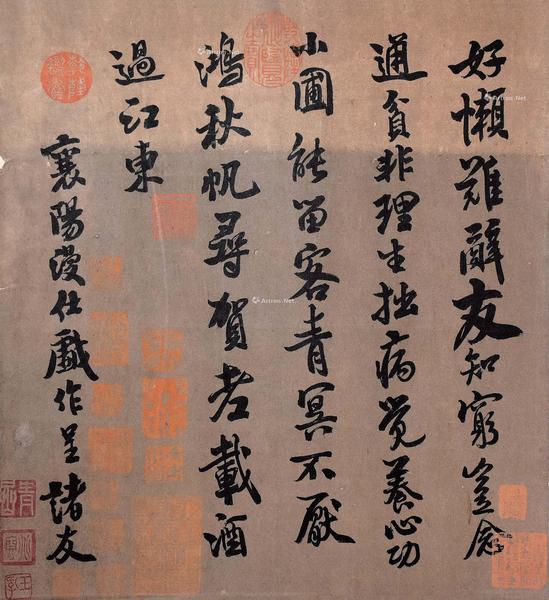 好懶難辭友知窮豈念
通貧非理生拙病覺養心功
小圃能留客青冥不厭
鴻秋帆尋賀老載酒
過江東
襄陽漫仕戲作呈諸友
Artron.Net
Artron.Net